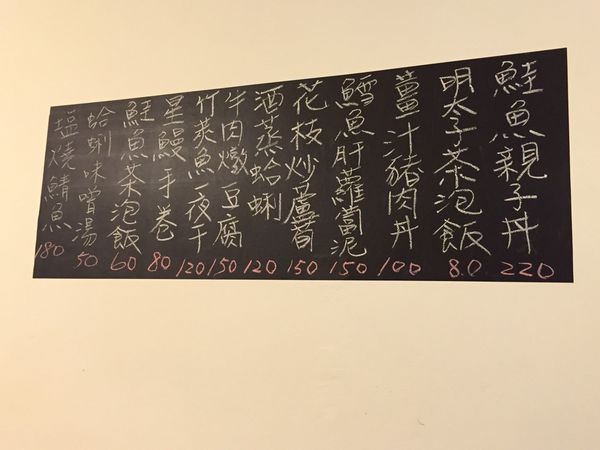 鮭魚親子丼 220
明太子茶泡飯 80
薑汁豬肉丼 100
鱈魚肝蘿蔔泥 150
花枝炒蘆筍 150
酒蒸蛤蜊 120
牛肉燉豆腐 150
竹莢魚一夜干 120
星鰻手卷 80
鮭魚茶泡飯 60
蛤蜊味噌湯 50
塩燒鯖魚 180